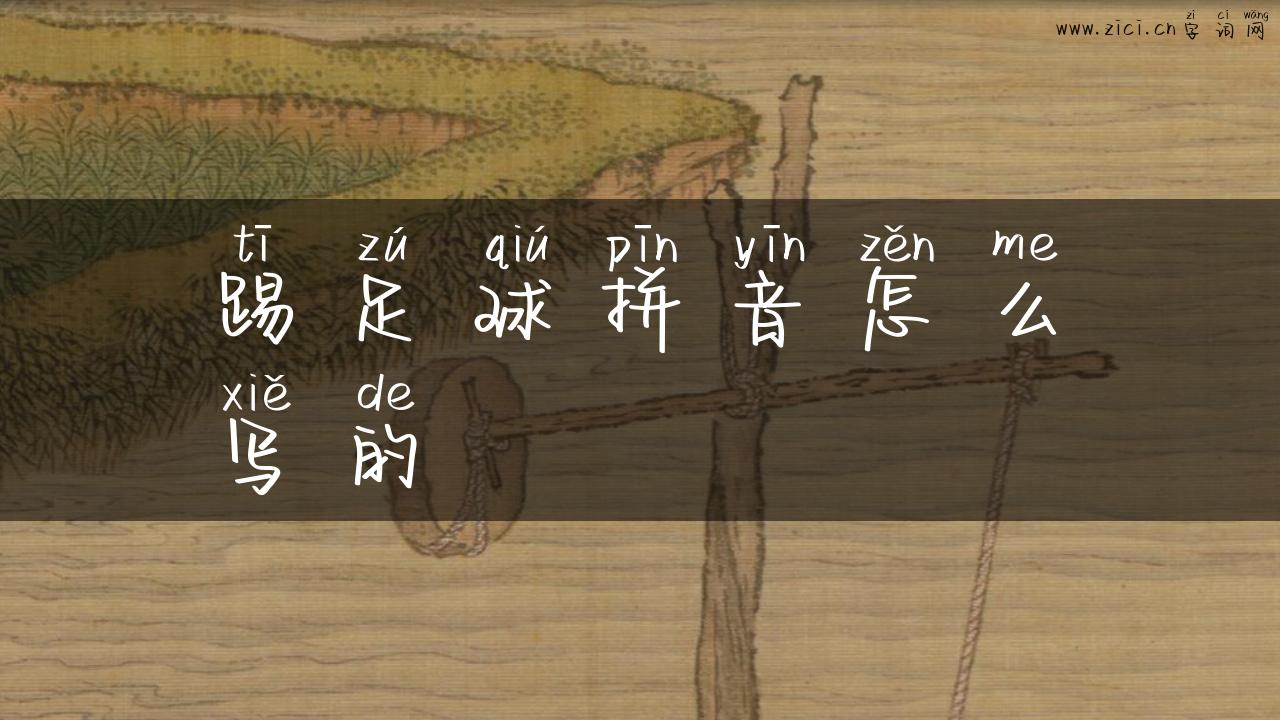 zì cí wǎng
www.zici.cn 字 词 网
tī zú qiú pīn yīn zěn me
踢 足 球 拼 音 怎 么
xiě de
写 的